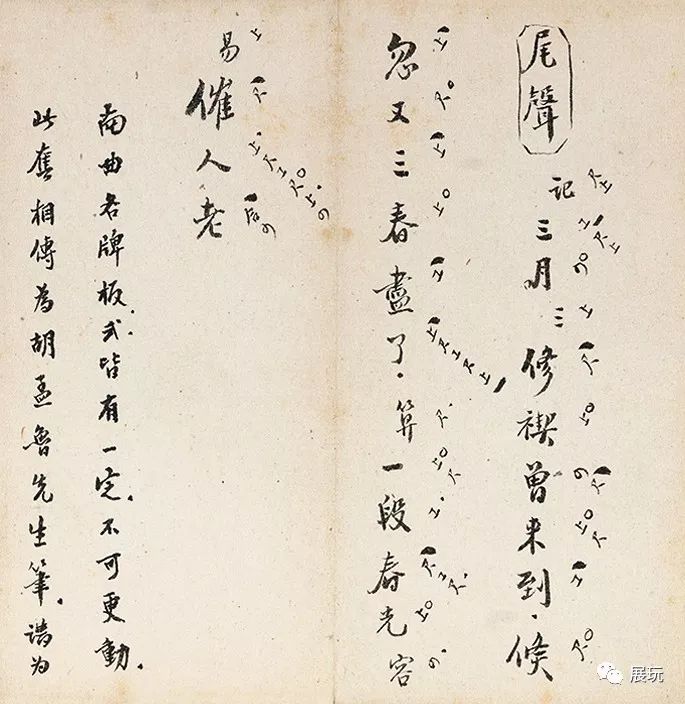 尾聲
記三月三修禊曾来到．倏
忽又三春盡了．算一段春光容
易催人老
南曲名牌板式皆有一定．不可更動．
此套相傳為胡孟魯先生筆．譜为
展玩